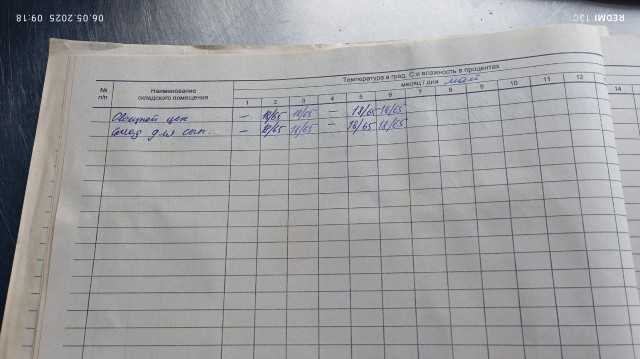 06.05.2025 09:18
REDMI 13C
Температура в град. С и влажность в процентах
№ п/п
Наименование складского помещения
месяц / дни май
1 2 3 4 5 6 7 8 9 10 11 12 14
Овощной цех – 18/65 18/65 – 18/65 18/65
Склад для сып. – 18/65 18/65 – 18/65 18/65